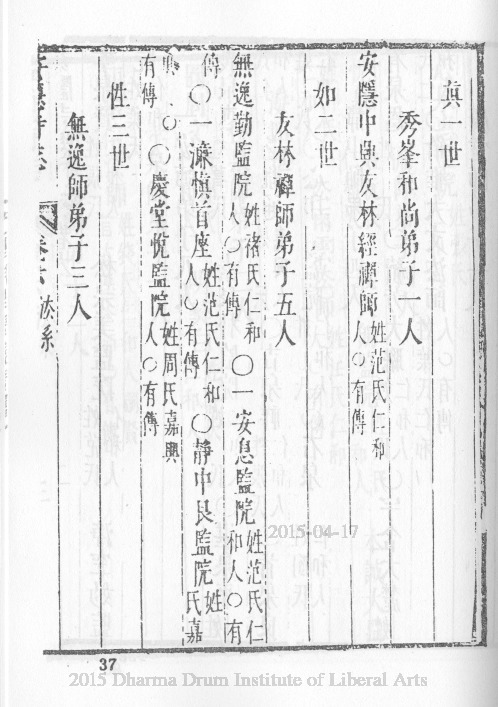 真一世
秀峯和尚弟子一人
安隱中興友林經禪師姓范氏仁和人○有傳
如二世
友林禪師弟子五人
無逸勤監院姓褚氏仁和人○有傳○一安息監院姓范氏仁和人○有
傳○一濂慎首座姓范氏仁和人○有傳○靜中良監院姓氏嘉
興○○慶堂悅監院姓周氏嘉興人○有傳
有傳
性三世
無逸師弟子三人
卷六 法系
37
2015-04-17
2015 Dharma Drum Institute of Liberal Arts